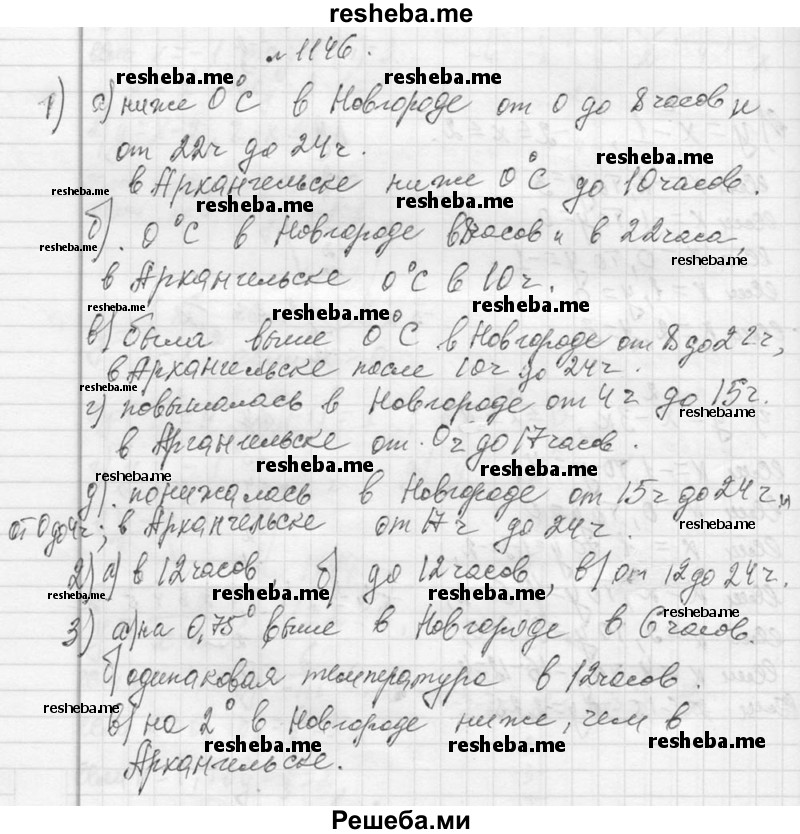 resheba.me
№ 1146.
resheba.me resheba.me
1) а) ниже 0°С в Новгороде от 0 до 8 часов и
от 22ч до 24ч.
resheba.me
в Архангельске ниже 0°С до 10 часов.
resheba.me resheba.me resheba.me
б). 0°С в Новгороде в 8 часов и в 22 часа,
resheba.me resheba.me
в Архангельске 0°С в 10ч.
resheba.me resheba.me resheba.me
в) была выше 0°С в Новгороде от 8 до 22ч,
в Архангельске после 10ч до 24ч.
resheba.me
г) повышалась в Новгороде от 4ч до 15ч.
resheba.me
в Аргангельске от 0ч до 17 часов.
resheba.me resheba.me resheba.me
д). понижалась в Новгороде от 15ч до 24ч и
от 0 до 4ч; в Архангельске от 17ч до 24ч.
resheba.me
2) а) в 12 часов, б) до 12 часов, в) от 12 до 24ч.
resheba.me resheba.me resheba.me
resheba.me
3) а) на 0,75° выше в Новгороде в 6 часов.
б) одинаковая температура в 12 часов.
resheba.me
в) на 2° в Новгороде ниже, чем в
resheba.me resheba.me resheba.me
Архангельске.
Решеба.ми